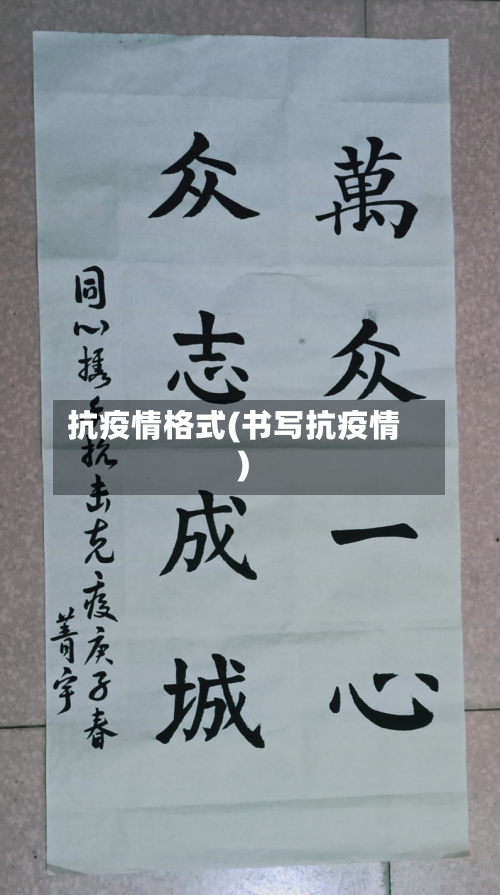 萬众一心
众志成城
同心携手抗击克疫庚子春
菁宇
抗疫情格式(书写抗疫情
)